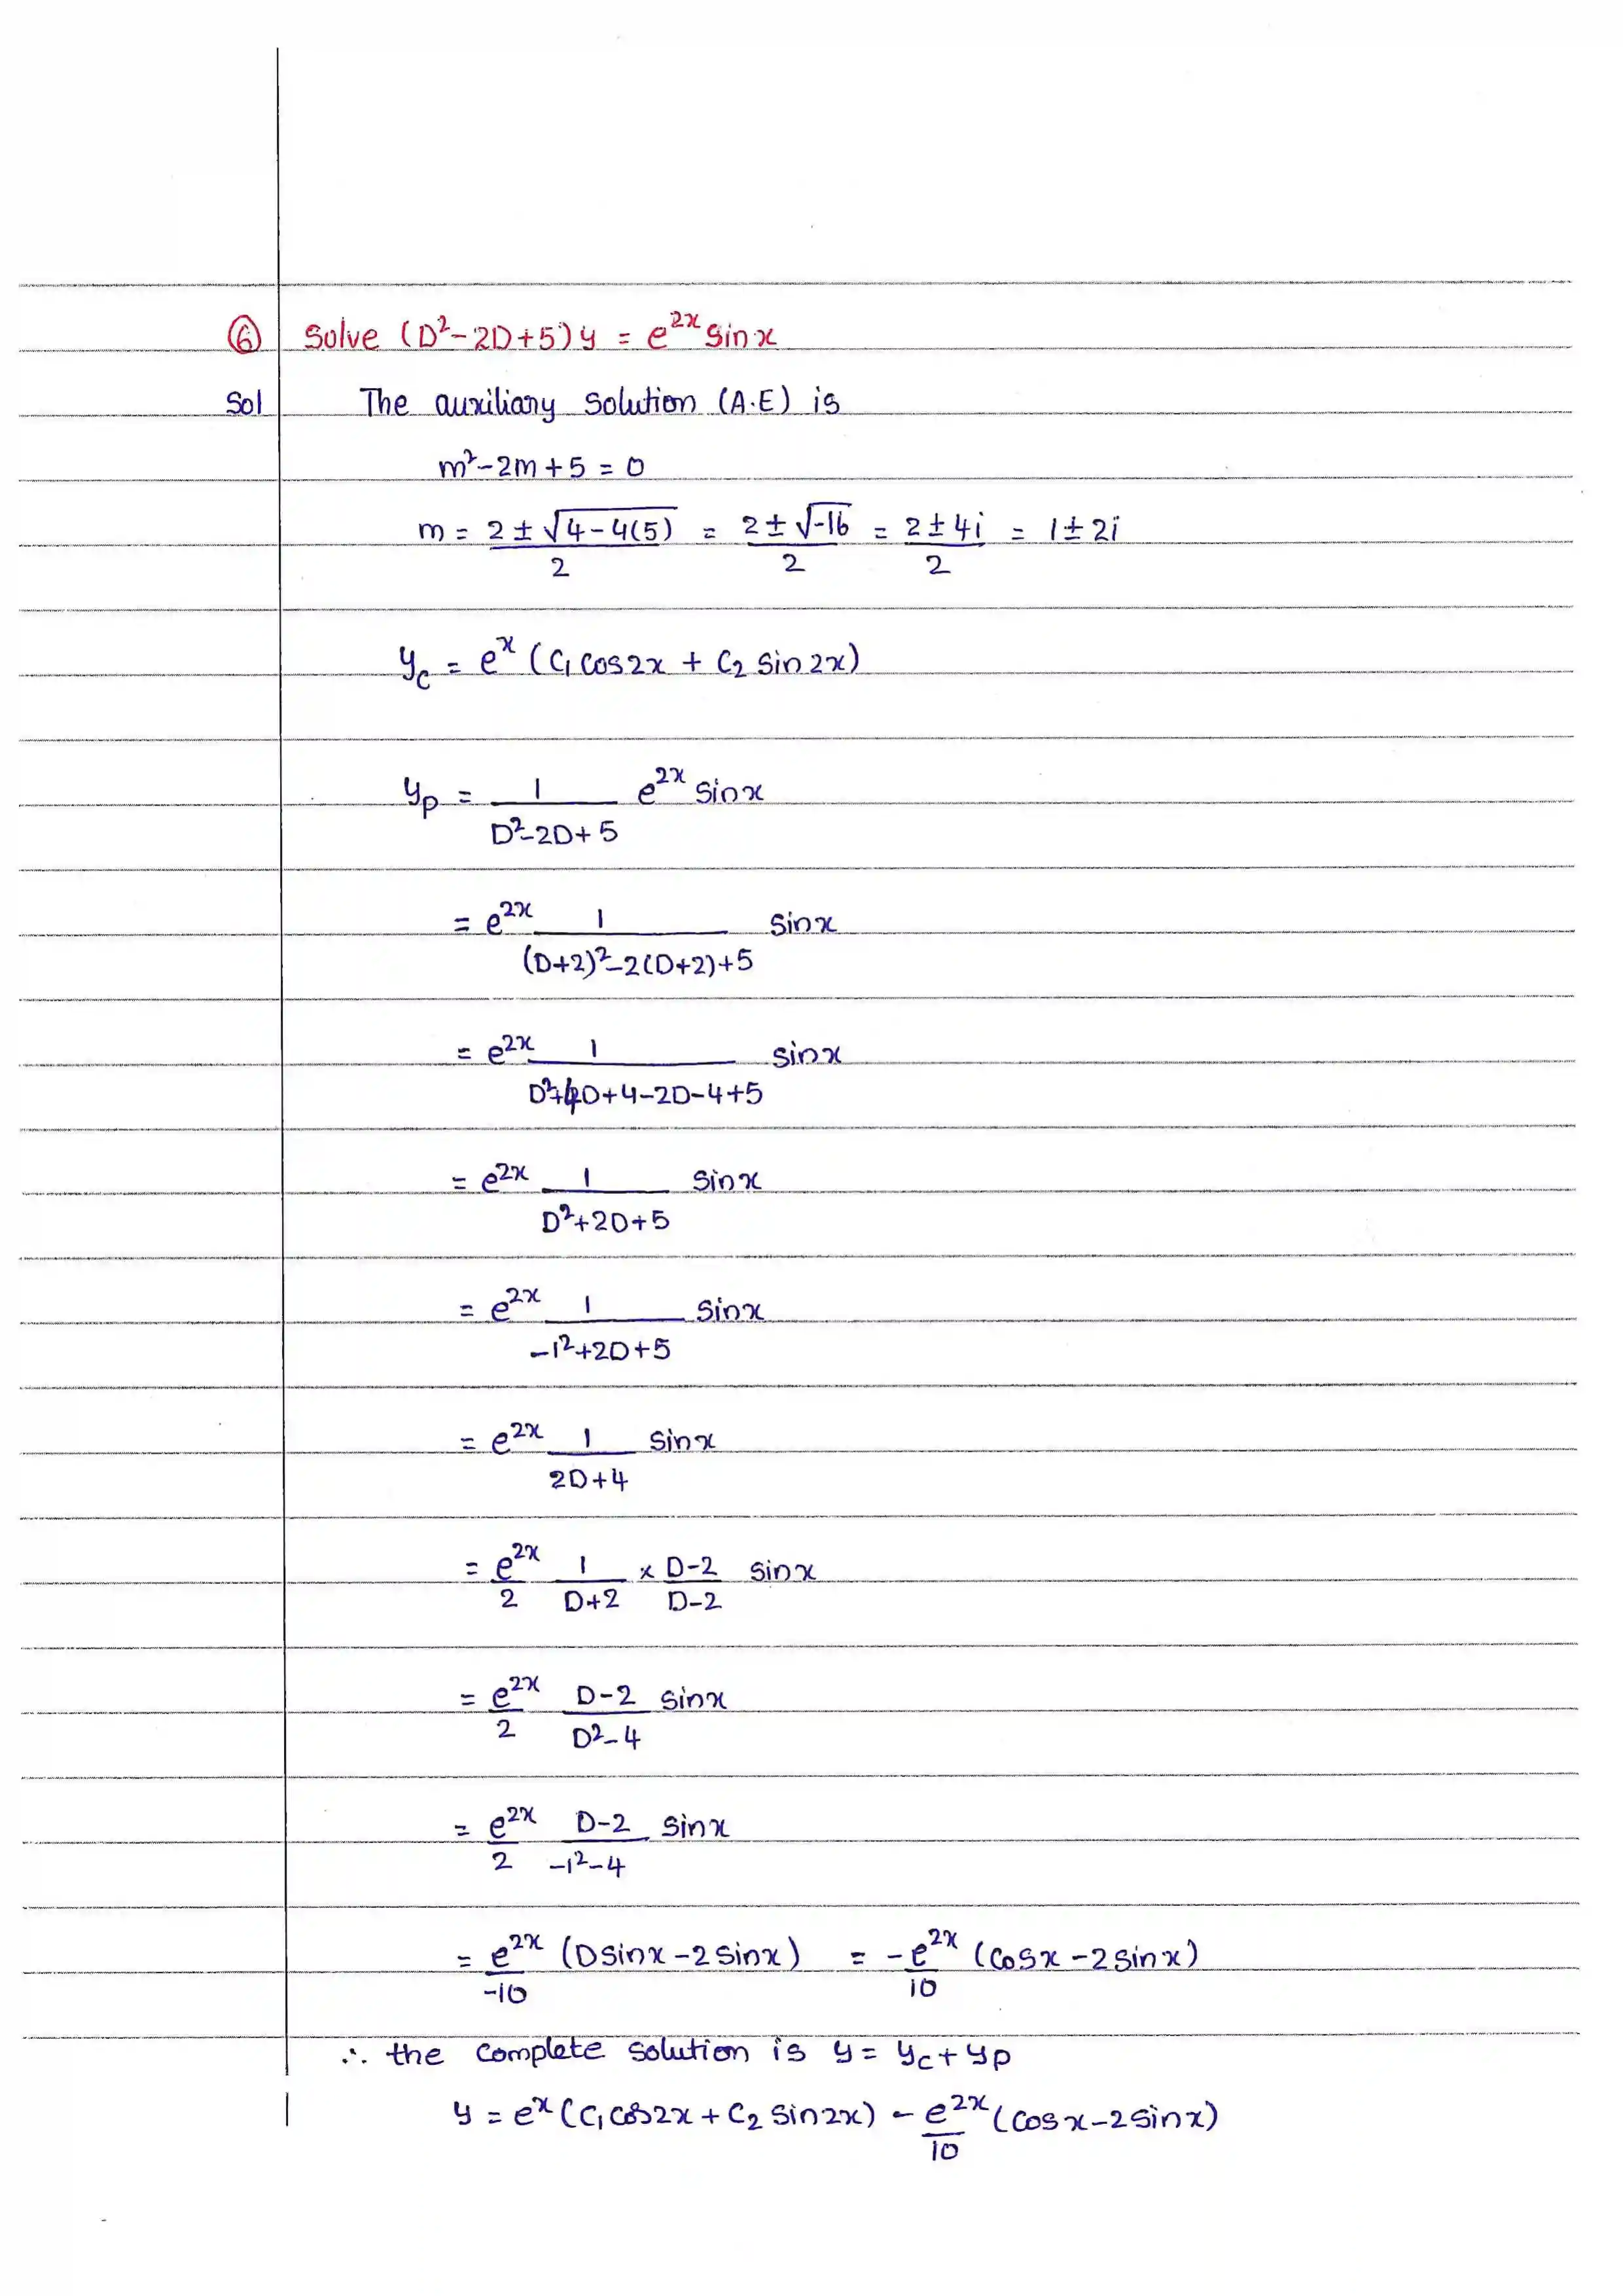 ⑥ Solve (D²-2D+5)y = e^{2x} sinx
Sol The auxiliary solution (A.E) is
m²-2m+5 = 0
m = \frac{2 ± √4-4(5)}{2} = \frac{2 ± √-16}{2} = \frac{2 ± 4i}{2} = 1 ± 2i
y_c = e^x (C₁ cos2x + C₂ sin 2x)
y_p = \frac{1}{D²-2D+5} e^{2x} sinx
= e^{2x} \frac{1}{(D+2)²-2(D+2)+5} sinx
= e^{2x} \frac{1}{D²+4D+4-2D-4+5} sinx
= e^{2x} \frac{1}{D²+2D+5} sinx
= e^{2x} \frac{1}{-1²+2D+5} sinx
= e^{2x} \frac{1}{2D+4} sinx
= \frac{e^{2x}}{2} \frac{1}{D+2} × \frac{D-2}{D-2} sinx
= \frac{e^{2x}}{2} \frac{D-2}{D²-4} sinx
= \frac{e^{2x}}{2} \frac{D-2}{-1²-4} sinx
= \frac{e^{2x}}{-10} (Dsinx-2sinx) = -\frac{e^{2x}}{10} (cosx-2sinx)
∴ the complete solution is y = y_c + y_p
y = e^x (C₁ cos2x + C₂ sin2x) - \frac{e^{2x}}{10} (cosx-2sinx)